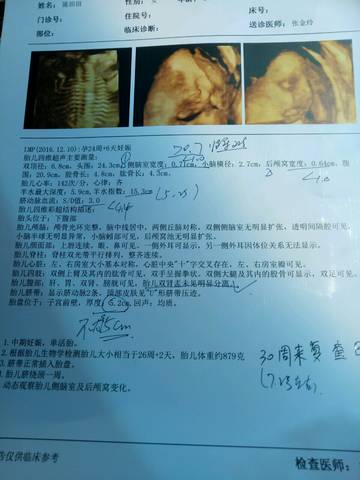 姓名:
性别: 女
门诊号:
住院号:
床号:
部位:
临床诊断:
送诊医师:
LMP(2016.12.10):孕24周+6天妊娠
胎儿四维超声主要测量:
双顶径: 6.8cm, 头围: 24.3cm, 侧脑室宽度: 0.71cm, 小脑横径: 2.7cm, 后颅窝宽度: 0.64cm, 腹
围: 20.9cm, 股骨长: 4.8cm, 肱骨长: 4.3cm。
胎儿心率: 142次/分, 心律: 齐
羊水最大深度: 5.9cm, 羊水指数: 15.3cm
脐动脉血流: S/D值: 3.0
胎儿四维彩超结构描述:
胎头位于: 下腹部
胎儿颅脑: 颅骨光环完整, 脑中线居中, 两侧丘脑对称, 双侧侧脑室无明显扩张, 透明间隔腔可见,
小脑半球无明显异常, 小脑蚓部可见, 后颅窝池无明显扩张。
胎儿颜面部: 上唇连续, 眼、鼻可见。一侧外耳可显示, 另一侧外耳因体位关系无法显示。
胎儿脊柱: 脊柱双光带平行排列, 整齐连续。
胎儿心脏: 左、右房室大小基本对称, 心脏中央"十"字交叉存在, 左、右房室瓣可见。
胎儿四肢: 双侧上臂及其内的肱骨可见, 双手呈握拳状, 双侧大腿及其内的股骨可显示, 双足可见。
胎儿腹部: 肝、胃、双肾、膀胱可见, 胎儿双肾盂未见明显分离。
胎儿脐带: 显示脐动脉2条, 颈部皮肤见"U"形脐带压迹。
胎盘位于: 子宫前壁, 厚度: 6.2cm, 回声: 均质。
1. 中期妊娠, 单活胎。
2. 根据胎儿生物学检测胎儿大小相当于26周+2天, 胎儿体重约879克
3. 脐带正常插入胎盘。
胎儿脐绕颈一周。
动态观察胎儿侧脑室及后颅窝变化。
30周来复查
告仅供临床参考
检查医师: